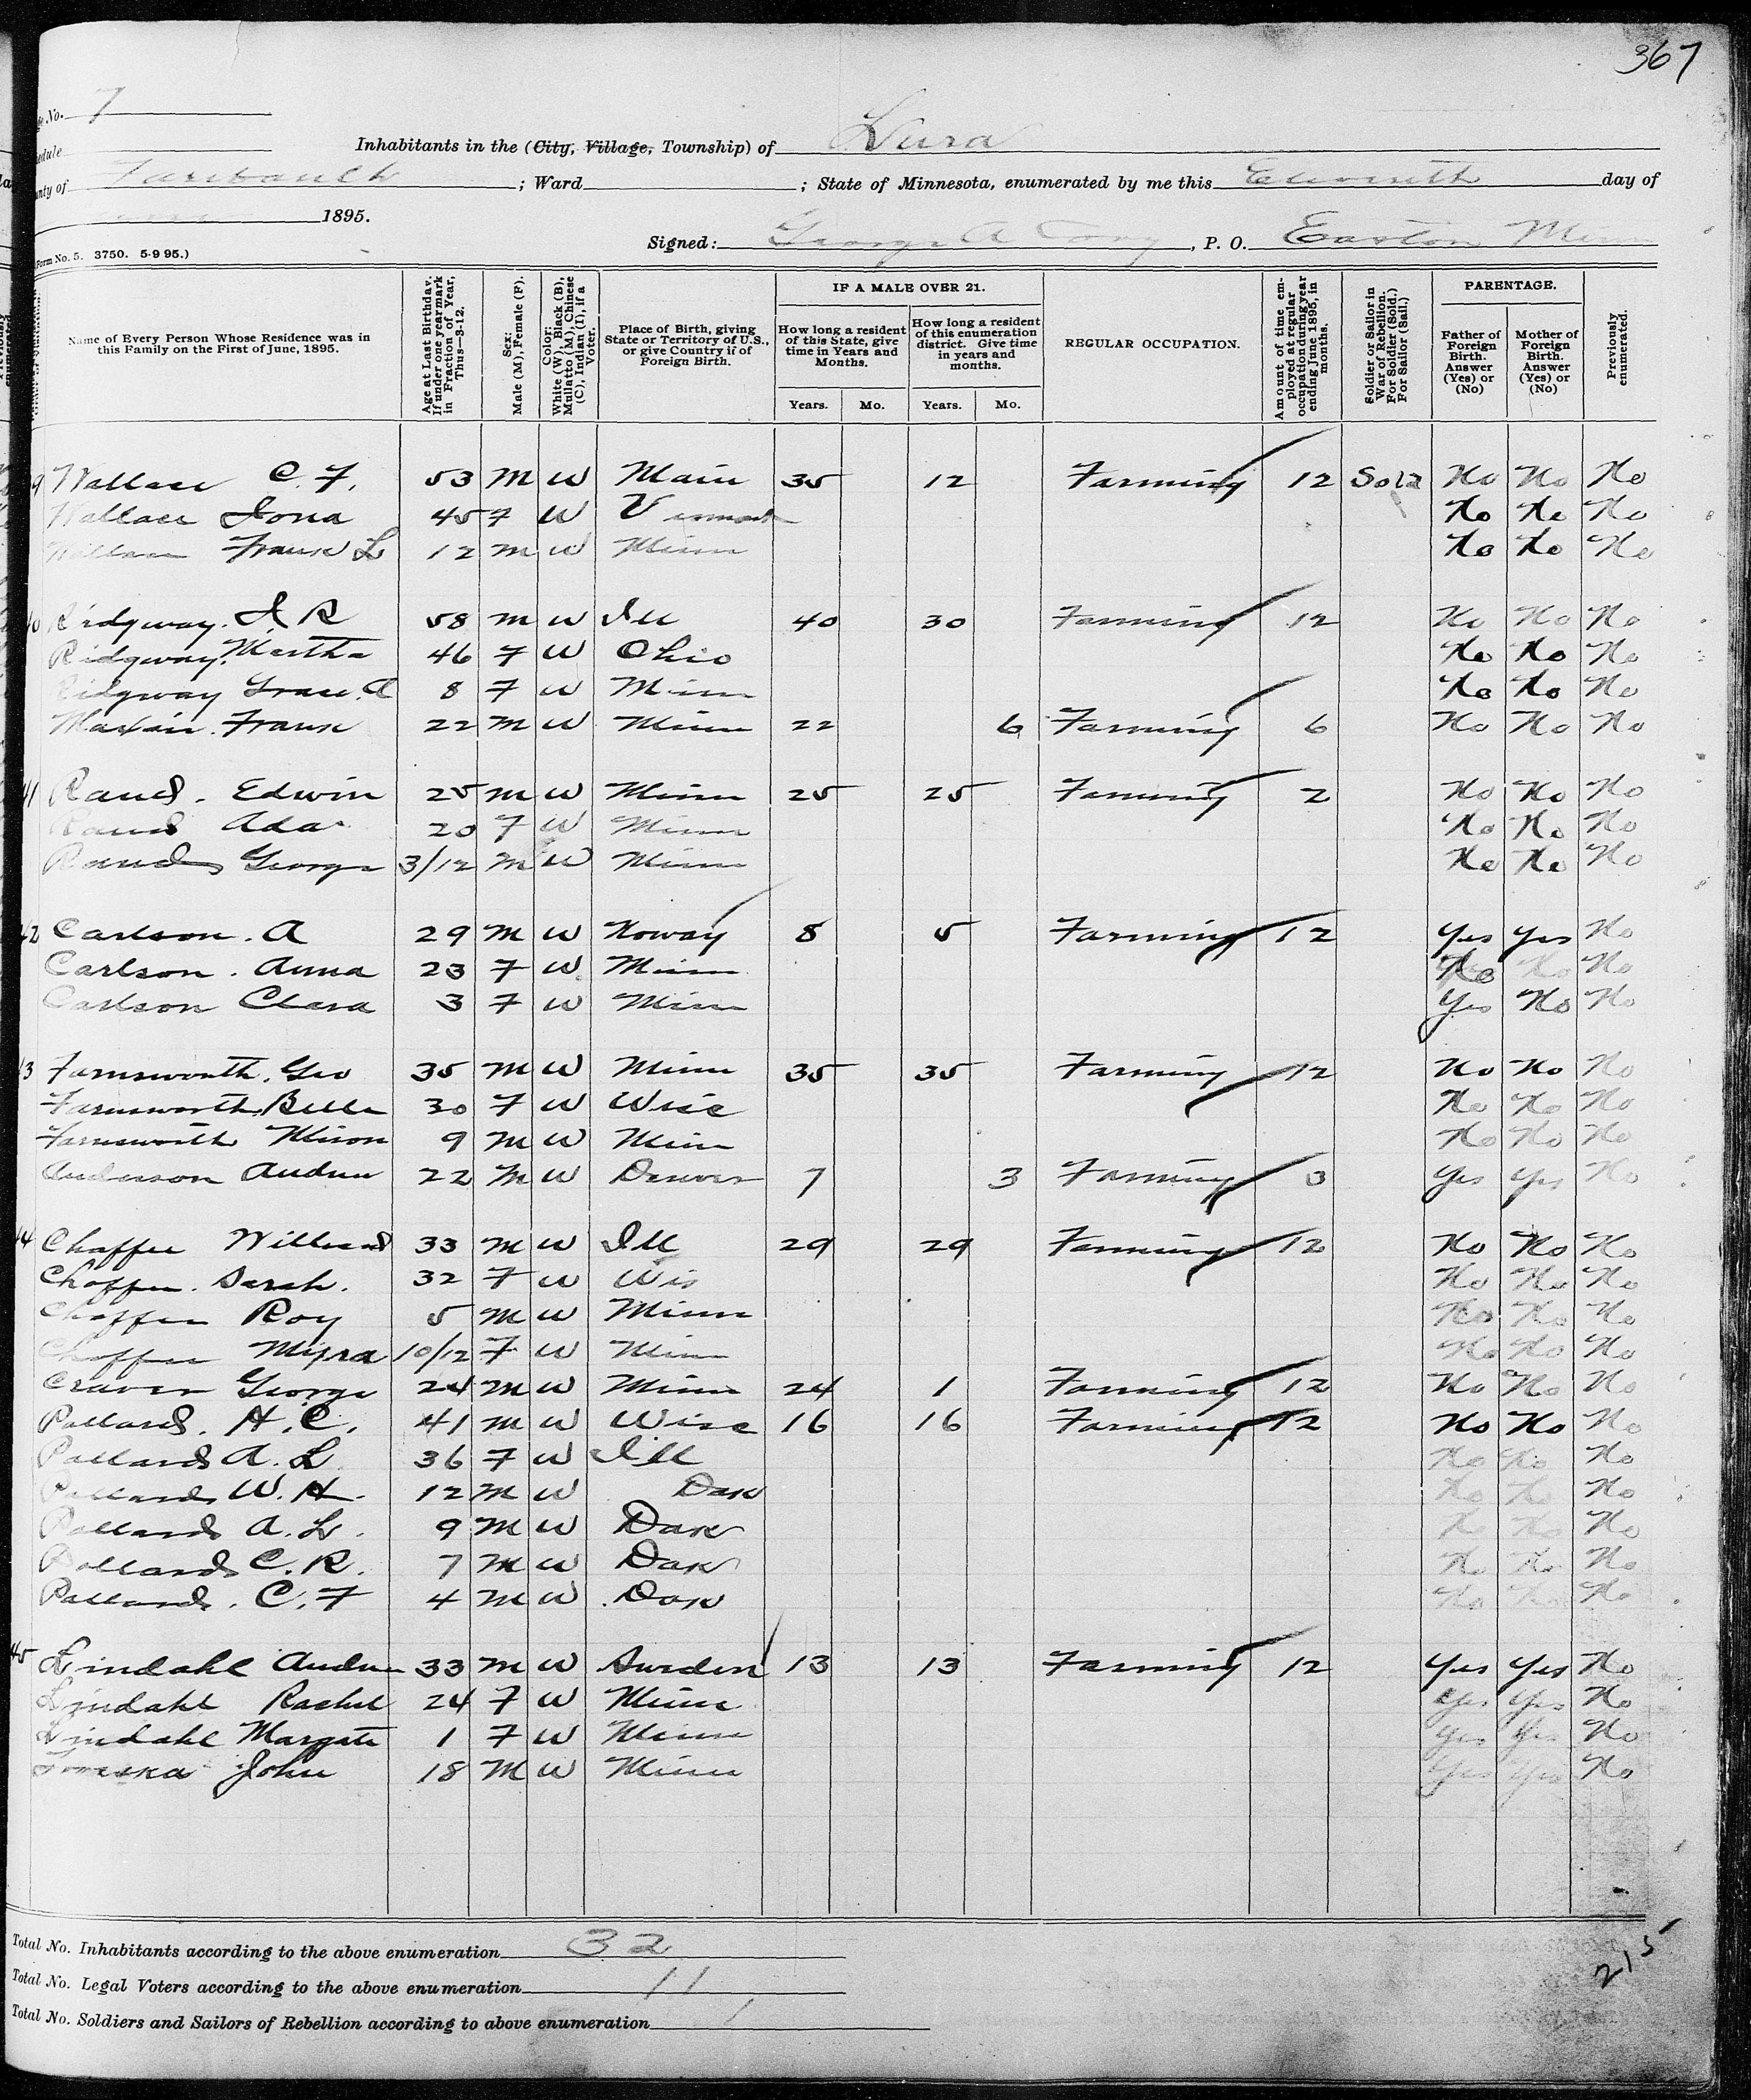 367
ge No. 7
edule
Inhabitants in the (City, Village, Township) of Lura
nty of Faribault ; Ward ; State of Minnesota, enumerated by me this Eleventh day of
1895.
Signed: George A , P. O. Easton Minn
Form No. 5. 3750. 5-9 95.)
Name of Every Person Whose Residence was in this Family on the First of June, 1895.
Age at Last Birthday. If under one year mark in Fraction of Year, Thus—3-12.
Sex: Male (M), Female (F).
Color: White (W), Black (B), Mulatto (M), Chinese (C), Indian (I), if a Voter.
Place of Birth, giving State or Territory of U.S., or give Country if of Foreign Birth.
IF A MALE OVER 21.
How long a resident of this State, give time in Years and Months.
How long a resident of this enumeration district. Give time in years and months.
Years. Mo. Years. Mo.
REGULAR OCCUPATION.
Amount of time employed at regular occupation during year ending June 1895, in months.
Soldier or Sailor in War of Rebellion. For Soldier (Sold.) For Sailor (Sail.)
PARENTAGE.
Father of Foreign Birth. Answer (Yes) or (No)
Mother of Foreign Birth. Answer (Yes) or (No)
Previously enumerated.
9 Wallace C. F. 53 M W Main 35 12 Farming 12 Sold No No No
Wallace Iona 45 F W Vermont No No No
Wallace Frank L 12 M W Minn No No No
40 Ridgway. J R 58 M W Ill 40 30 Farming 12 No No No
Ridgway. Martha 46 F W Ohio No No No
Ridgway Grace. A 8 F W Minn No No No
Martin. Frank 22 M W Minn 22 6 Farming 6 No No No
41 Rand. Edwin 25 M W Minn 25 25 Farming 2 No No No
Rand Ada 20 F W Minn No No No
Rand George 3/12 M W Minn No No No
42 Carlson. A 29 M W Noway 8 5 Farming 12 Yes Yes No
Carlson. Anna 23 F W Minn No No No
Carlson Clara 3 F W Minn Yes No No
13 Farnsworth. Geo 35 M W Minn 35 35 Farming 12 No No No
Farnsworth. Belle 30 F W Wisc No No No
Farnsworth Miron 9 M W Minn No No No
Anderson Andrew 22 M W 7 3 Farming 3 Yes Yes No
44 Chaffee Willard 33 M W Ill 29 29 Farming 12 No No No
Chaffee. Sarah. 32 F W Wis No No No
Chaffee Roy 5 M W Minn No No No
Chaffee Myra 10/12 F W Minn No No No
Craven George 24 M W Minn 24 1 Farming 12 No No No
Pollard. H. C. 41 M W Wisc 16 16 Farming 12 No No No
Pollard A. L. 36 F W Ill No No No
Pollard W. H. 12 M W Dak No No No
Pollard A. L. 9 M W Dak No No No
Pollard C. R. 7 M W Dak No No No
Pollard. C. F 4 M W Dak No No No
45 Lindahl Andrew 33 M W Sweden 13 13 Farming 12 Yes Yes No
Lindahl Rachel 24 F W Minn Yes Yes No
Lindahl Margate 1 F W Minn Yes Yes No
John 18 M W Minn Yes Yes No
Total No. Inhabitants according to the above enumeration 32
Total No. Legal Voters according to the above enumeration 11
Total No. Soldiers and Sailors of Rebellion according to above enumeration 1
215